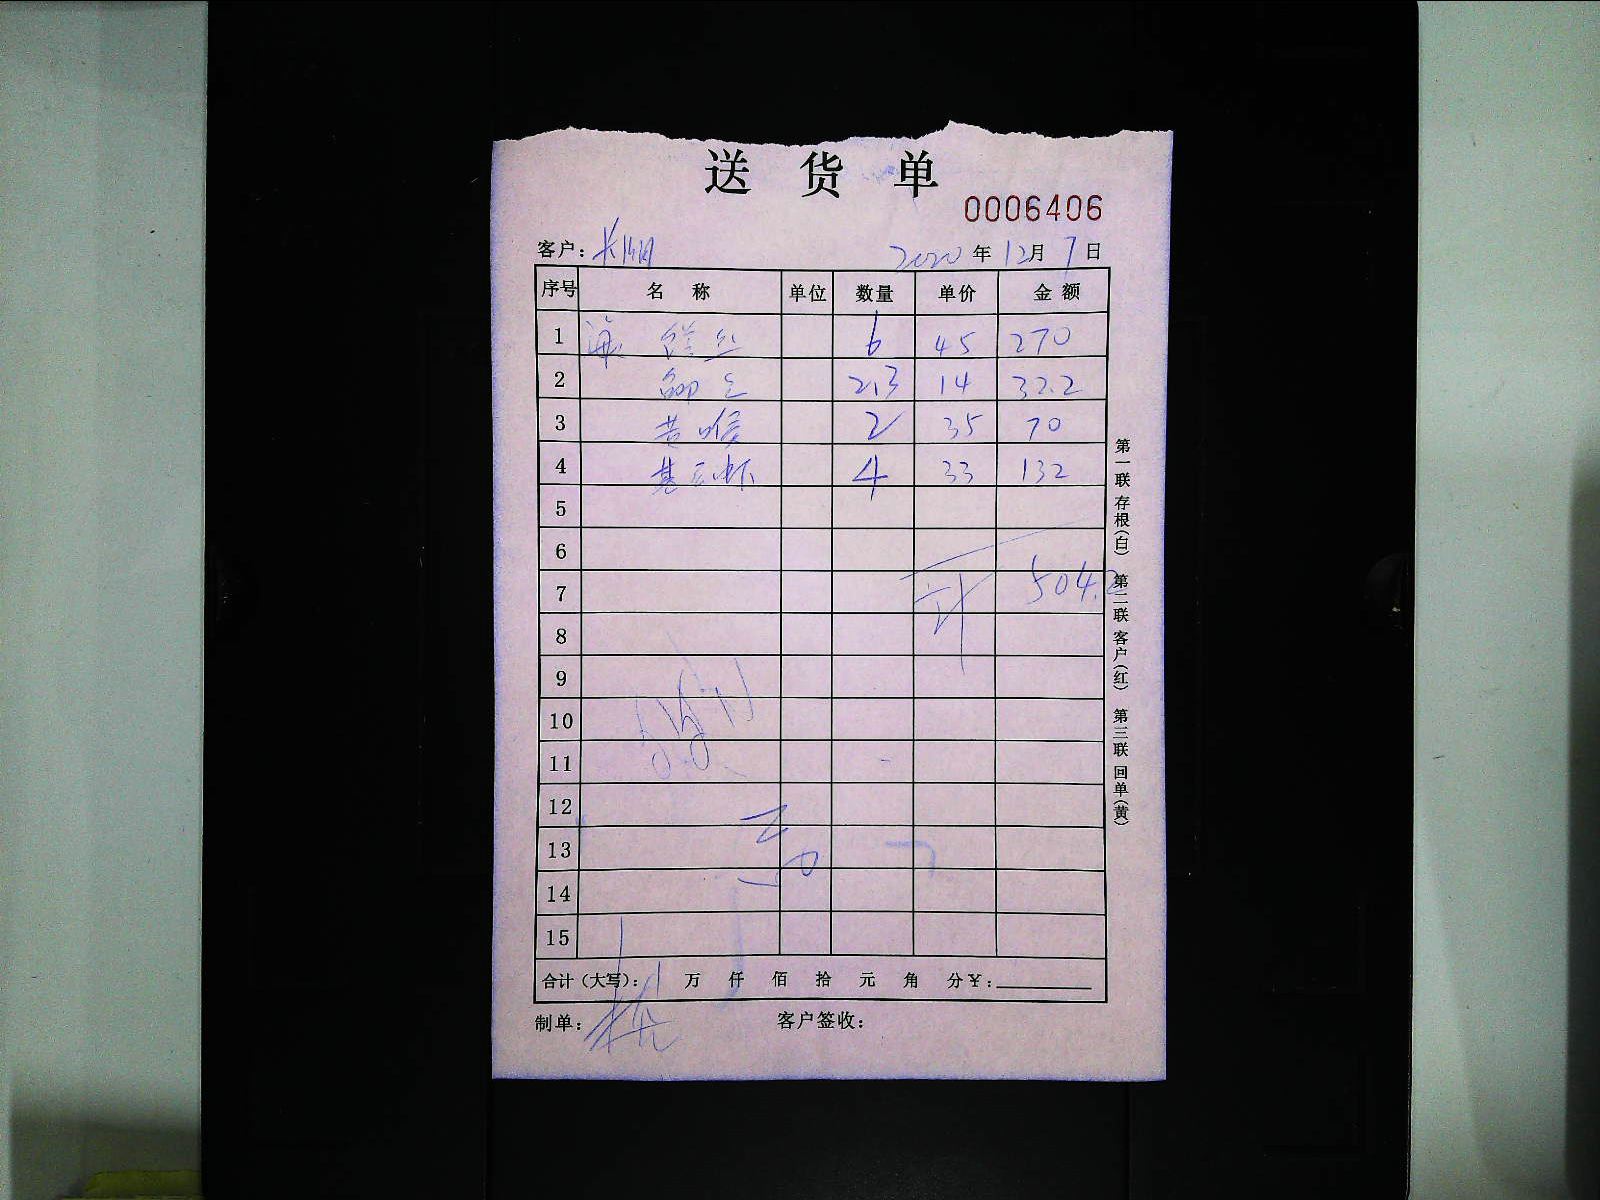 送 货 单
0006406
客户： 2020 年 12 月 7 日
序号 名 称 单位 数量 单价 金 额
1 海 6 45 270
2 2.3 14 32.2
3 黄喉 2 35 70
4 基围虾 4 33 132
5
6
7 计 504.2
8
9
10
11
12
13
14
15
合计（大写）： 万 仟 佰 拾 元 角 分￥：
制单： 客户签收：
第一联 存根（白） 第二联 客户（红） 第三联 回单（黄）